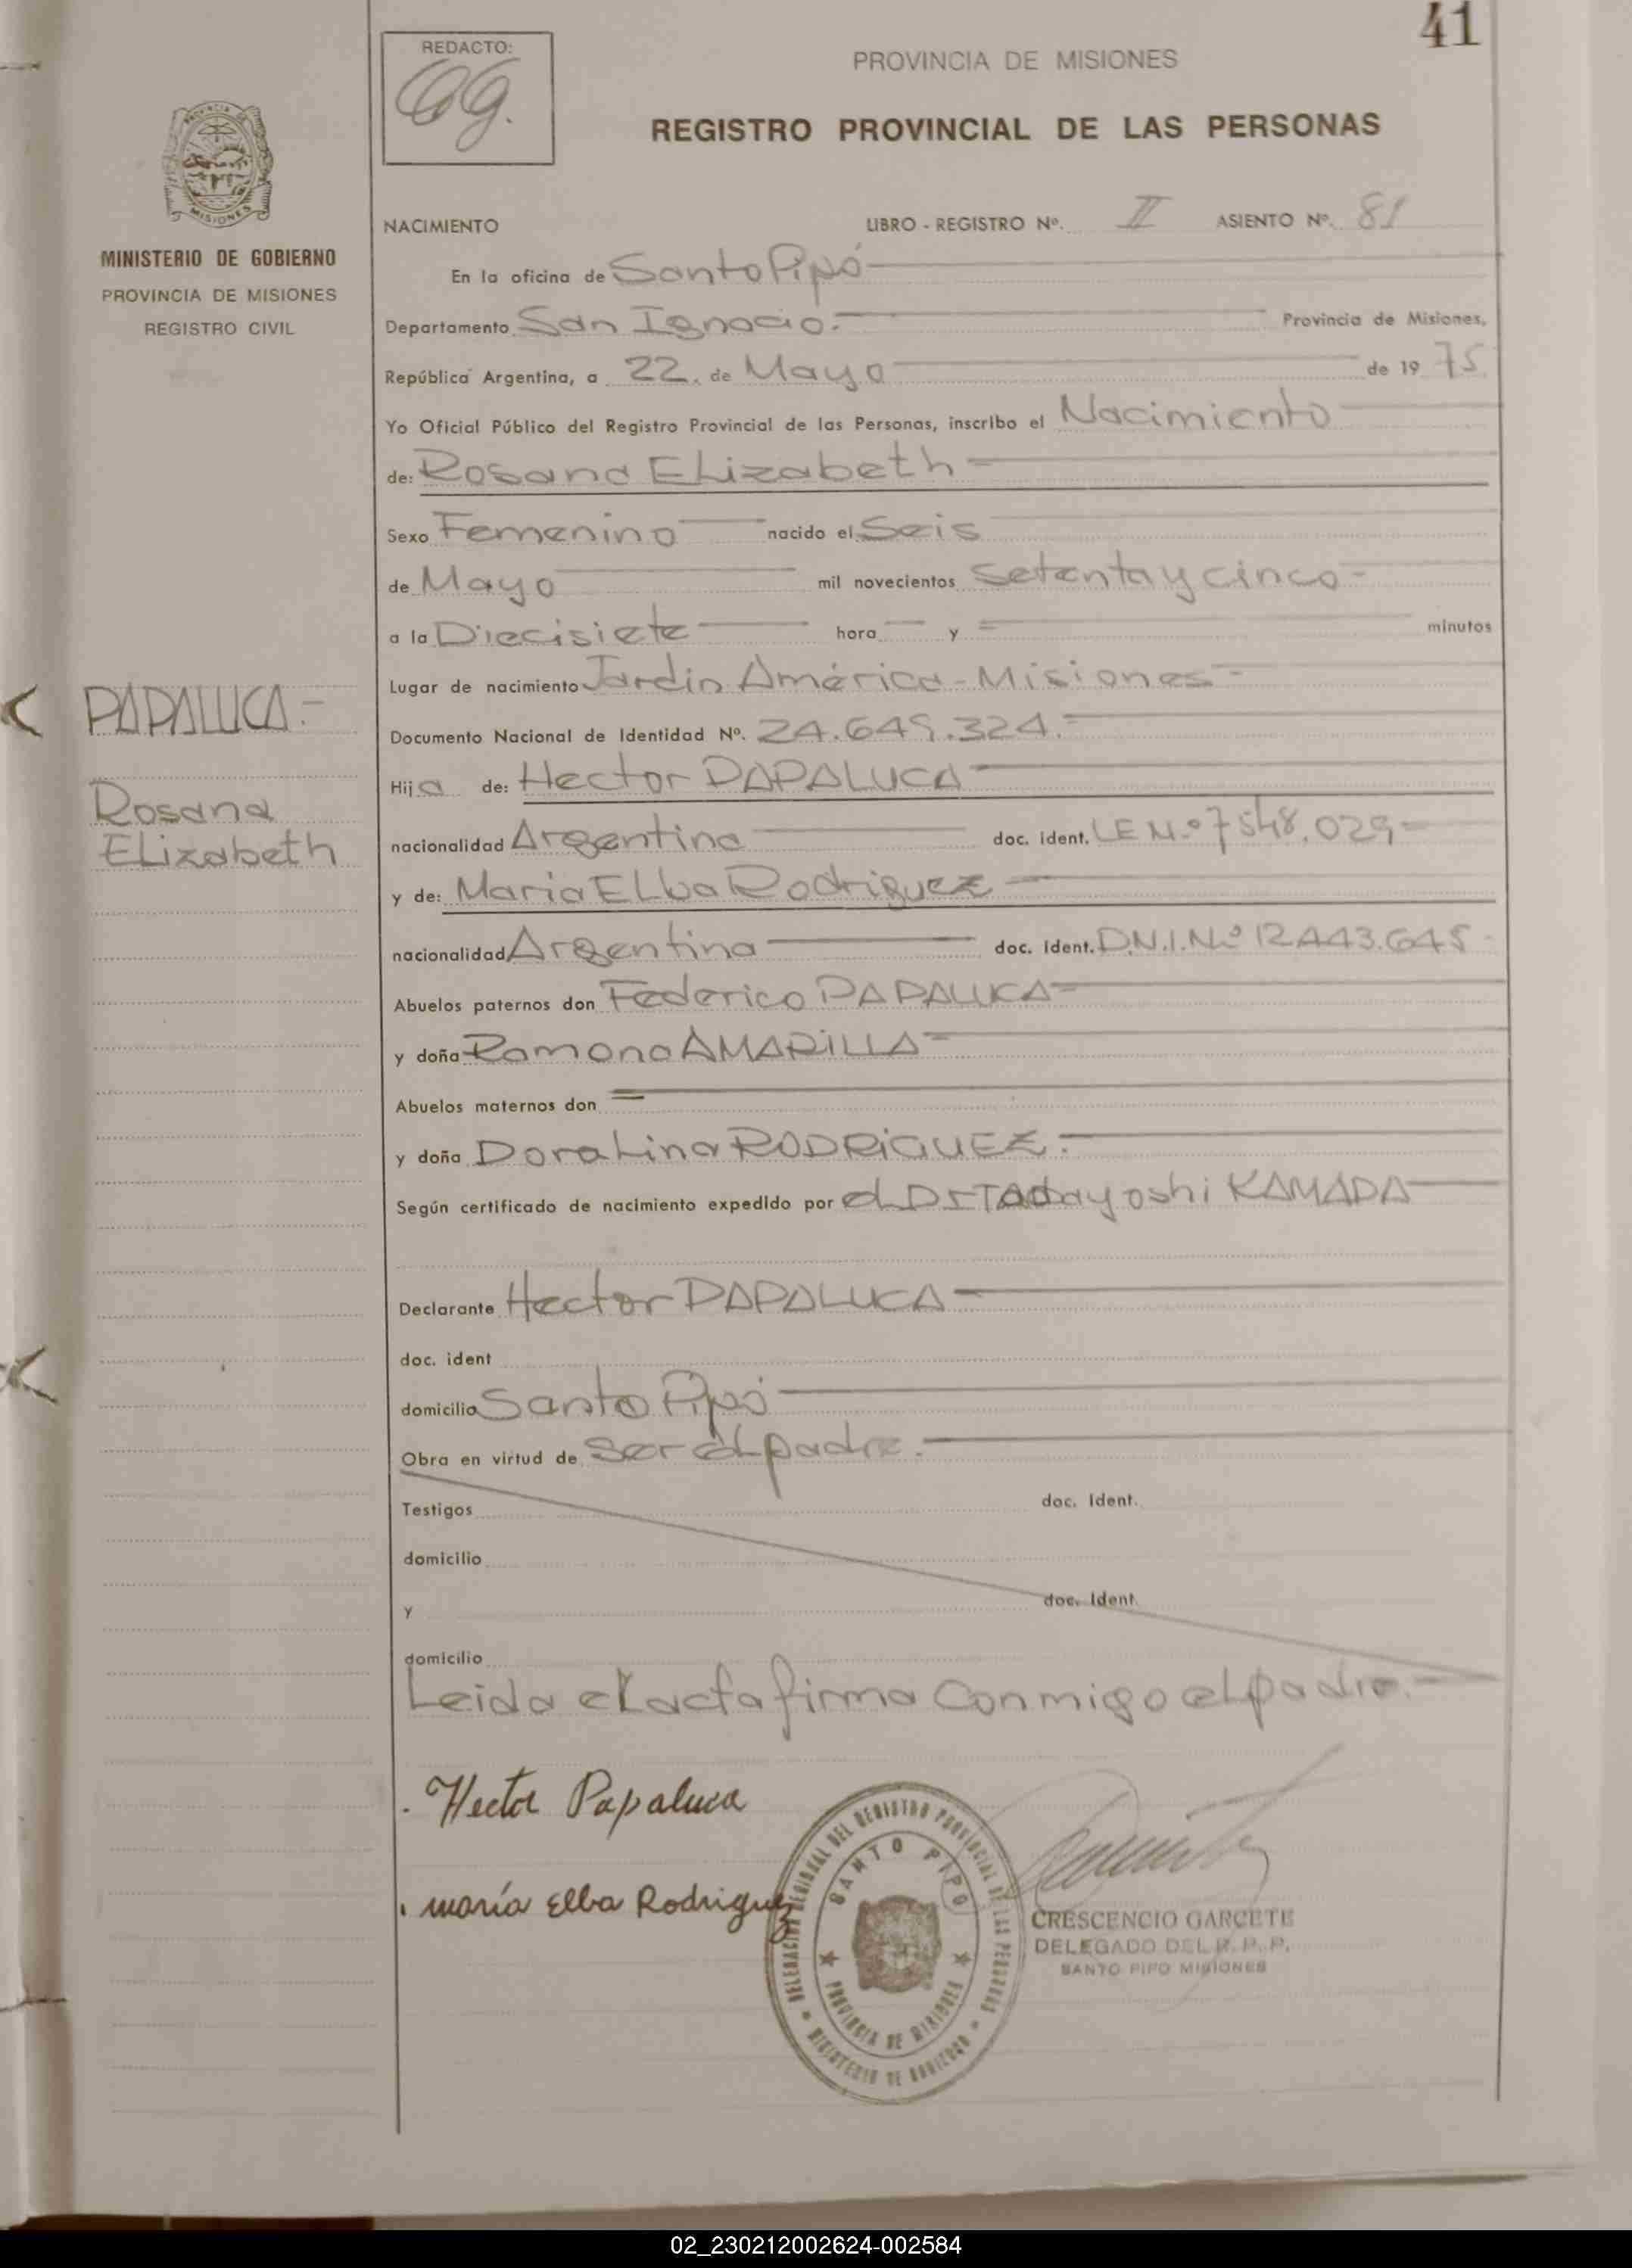 41
REDACTO:
PROVINCIA DE MISIONES
REGISTRO PROVINCIAL DE LAS PERSONAS
MISIONES
MINISTERIO DE GOBIERNO
PROVINCIA DE MISIONES
REGISTRO CIVIL
NACIMIENTO LIBRO - REGISTRO Nº. II ASIENTO Nº. 81
En la oficina de Santo Pipó
Departamento San Ignacio.- Provincia de Misiones,
República Argentina, a 22. de Mayo de 19 75
Yo Oficial Público del Registro Provincial de las Personas, inscribo el Nacimiento
de: Rosana Elizabeth
Sexo Femenino nacido el Seis
de Mayo mil novecientos setenta y cinco
a la Diecisiete hora y minutos
Lugar de nacimiento Jardin América - Misiones -
PAPALUCA.-
Rosana
Elizabeth
Documento Nacional de Identidad Nº. 24.649.324.-
Hija de: Hector PAPALUCA
nacionalidad Argentina doc. ident. LE N.º 7548.029
y de: Maria Elba Rodriguez
nacionalidad Argentina doc. ident. D.N.I. Nº 12.443.645
Abuelos paternos don Federico PAPALUCA
y doña Ramona AMARILLA
Abuelos maternos don
y doña Doralina RODRIGUEZ.-
Según certificado de nacimiento expedido por el Dr Tadayoshi KAMADA
Declarante Hector PAPALUCA
doc. ident
domicilio Santo Pipó
Obra en virtud de ser el padre.
Testigos doc. Ident.
domicilio
y doc. Ident.
domicilio
Leida el acta firma conmigo el padre.-
Hector Papaluca
María Elba Rodriguez
DELEGACION REGIONAL DEL REGISTRO PROVINCIAL DE LAS PERSONAS
SANTO PIPO
PROVINCIA DE MISIONES
MINISTERIO DE GOBIERNO
CRESCENCIO GARCETE
DELEGADO DEL R. P. P.
SANTO PIPO MISIONES
02_230212002624-002584